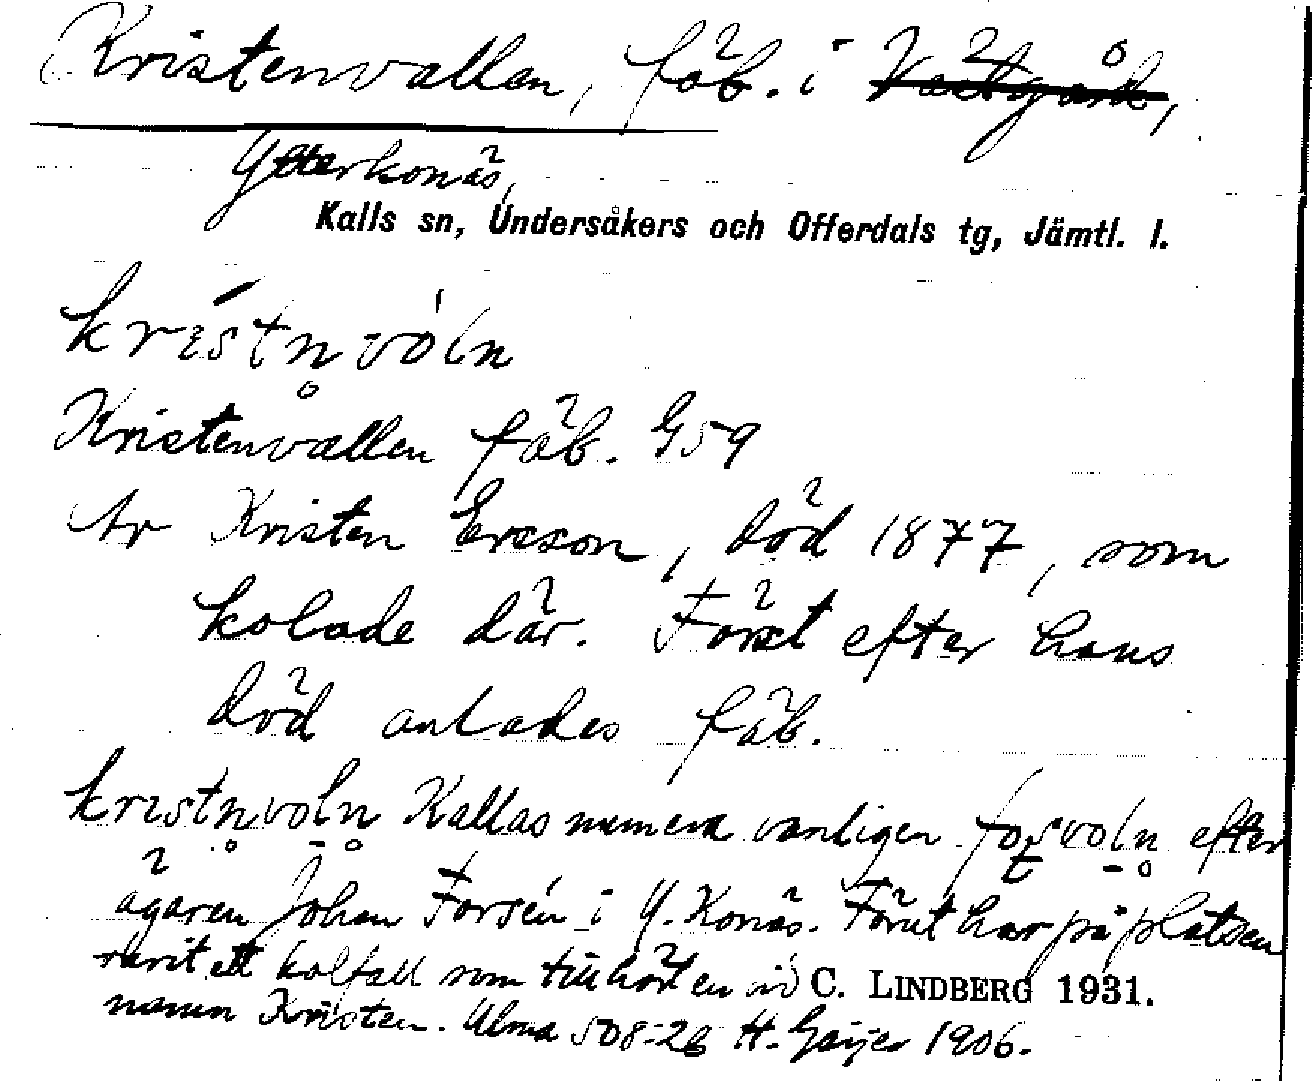 Kristenvallen, fäb. i Västgård,
Ytterkonäs,
Kalls sn, Undersåkers och Offerdals tg, Jämtl. l.
krístn̥ vóln
Kristenvallen fäb. G59
Av Kristen Ersson, död 1877, som
kolade där. Först efter hans
död anlades fäb.
kristn̥voln̥ Kallas numera vanligen forsvoln̥ efter
ägaren Johan Forsén i Y. Konäs. Förut har på platsen
varit ett kolfall som tillhört en vid
C. LINDBERG 1931.
namn Kristen. Ulma 508:26 H. Geijer 1906.